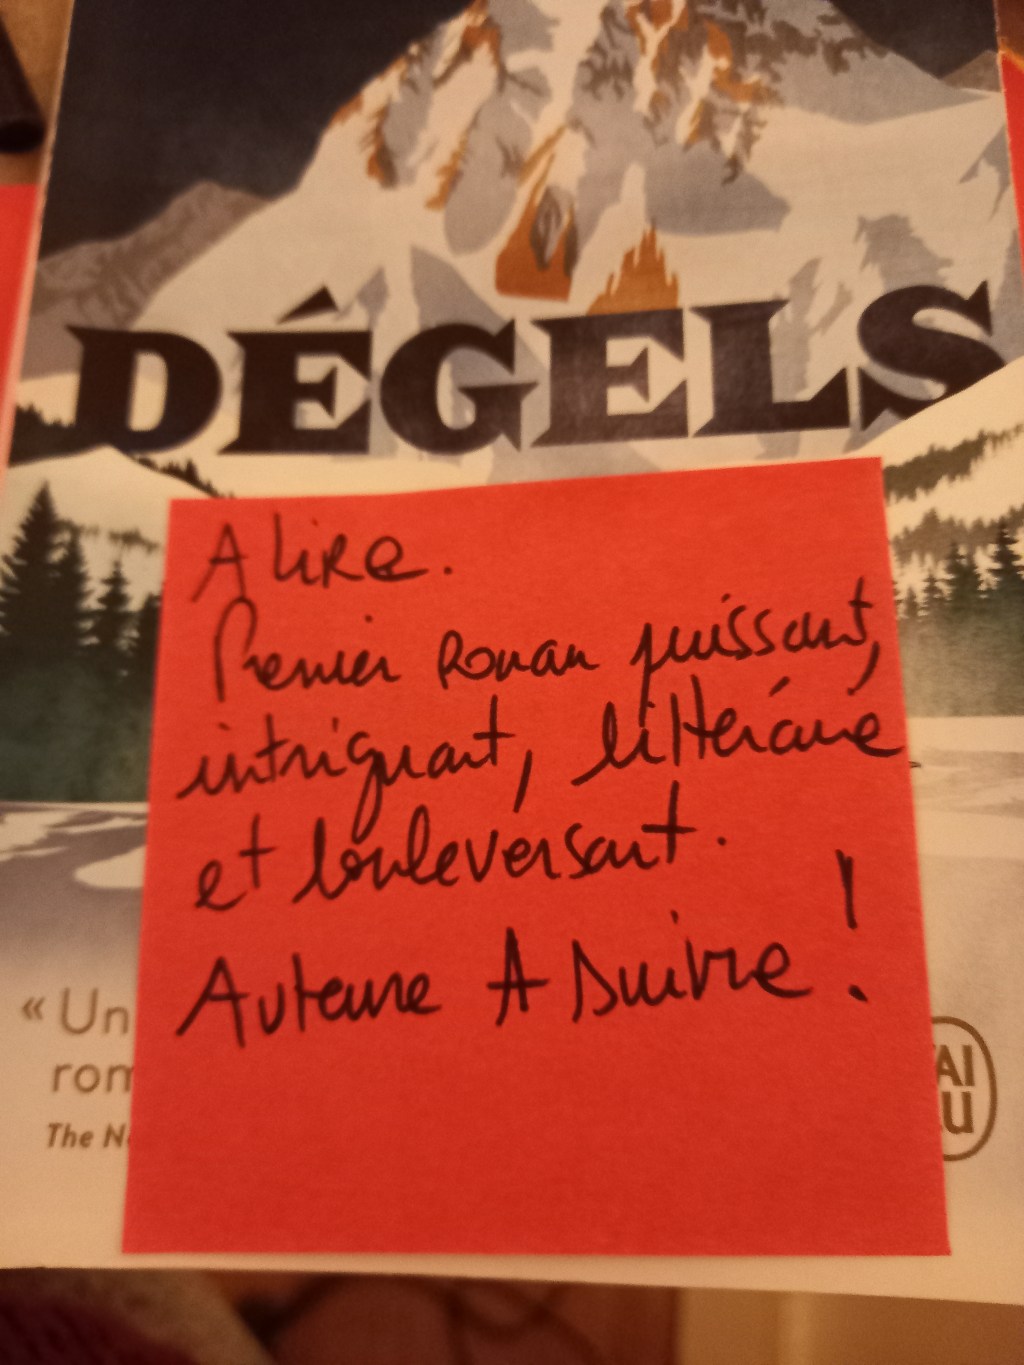 DÉGELS
A lire.
Premier Roman puissant,
intriguant, littéraire
et bouleversant.
Auteure A suivre !
« Un
rom
The N
AI
LU